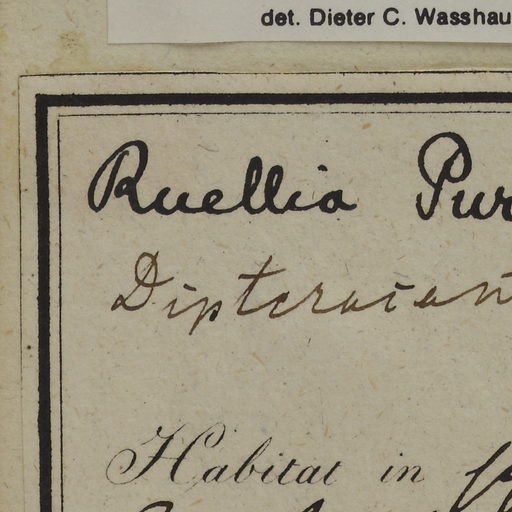 det. Dieter C. Wasshau
Ruellia Pur
Dipteracan
Habitat in